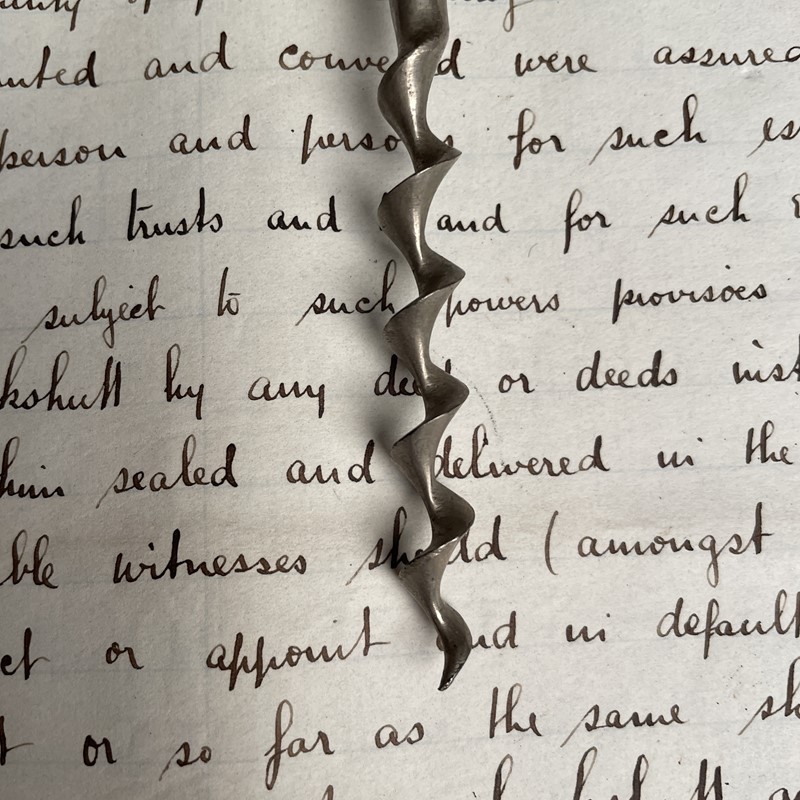 and conve d were
person and perso s for such
such trusts and and for such
subject to such powers provisoes
by any deed or deeds
sealed and delivered in the
witnesses should (amongst
or appoint and in default
or so far as the same